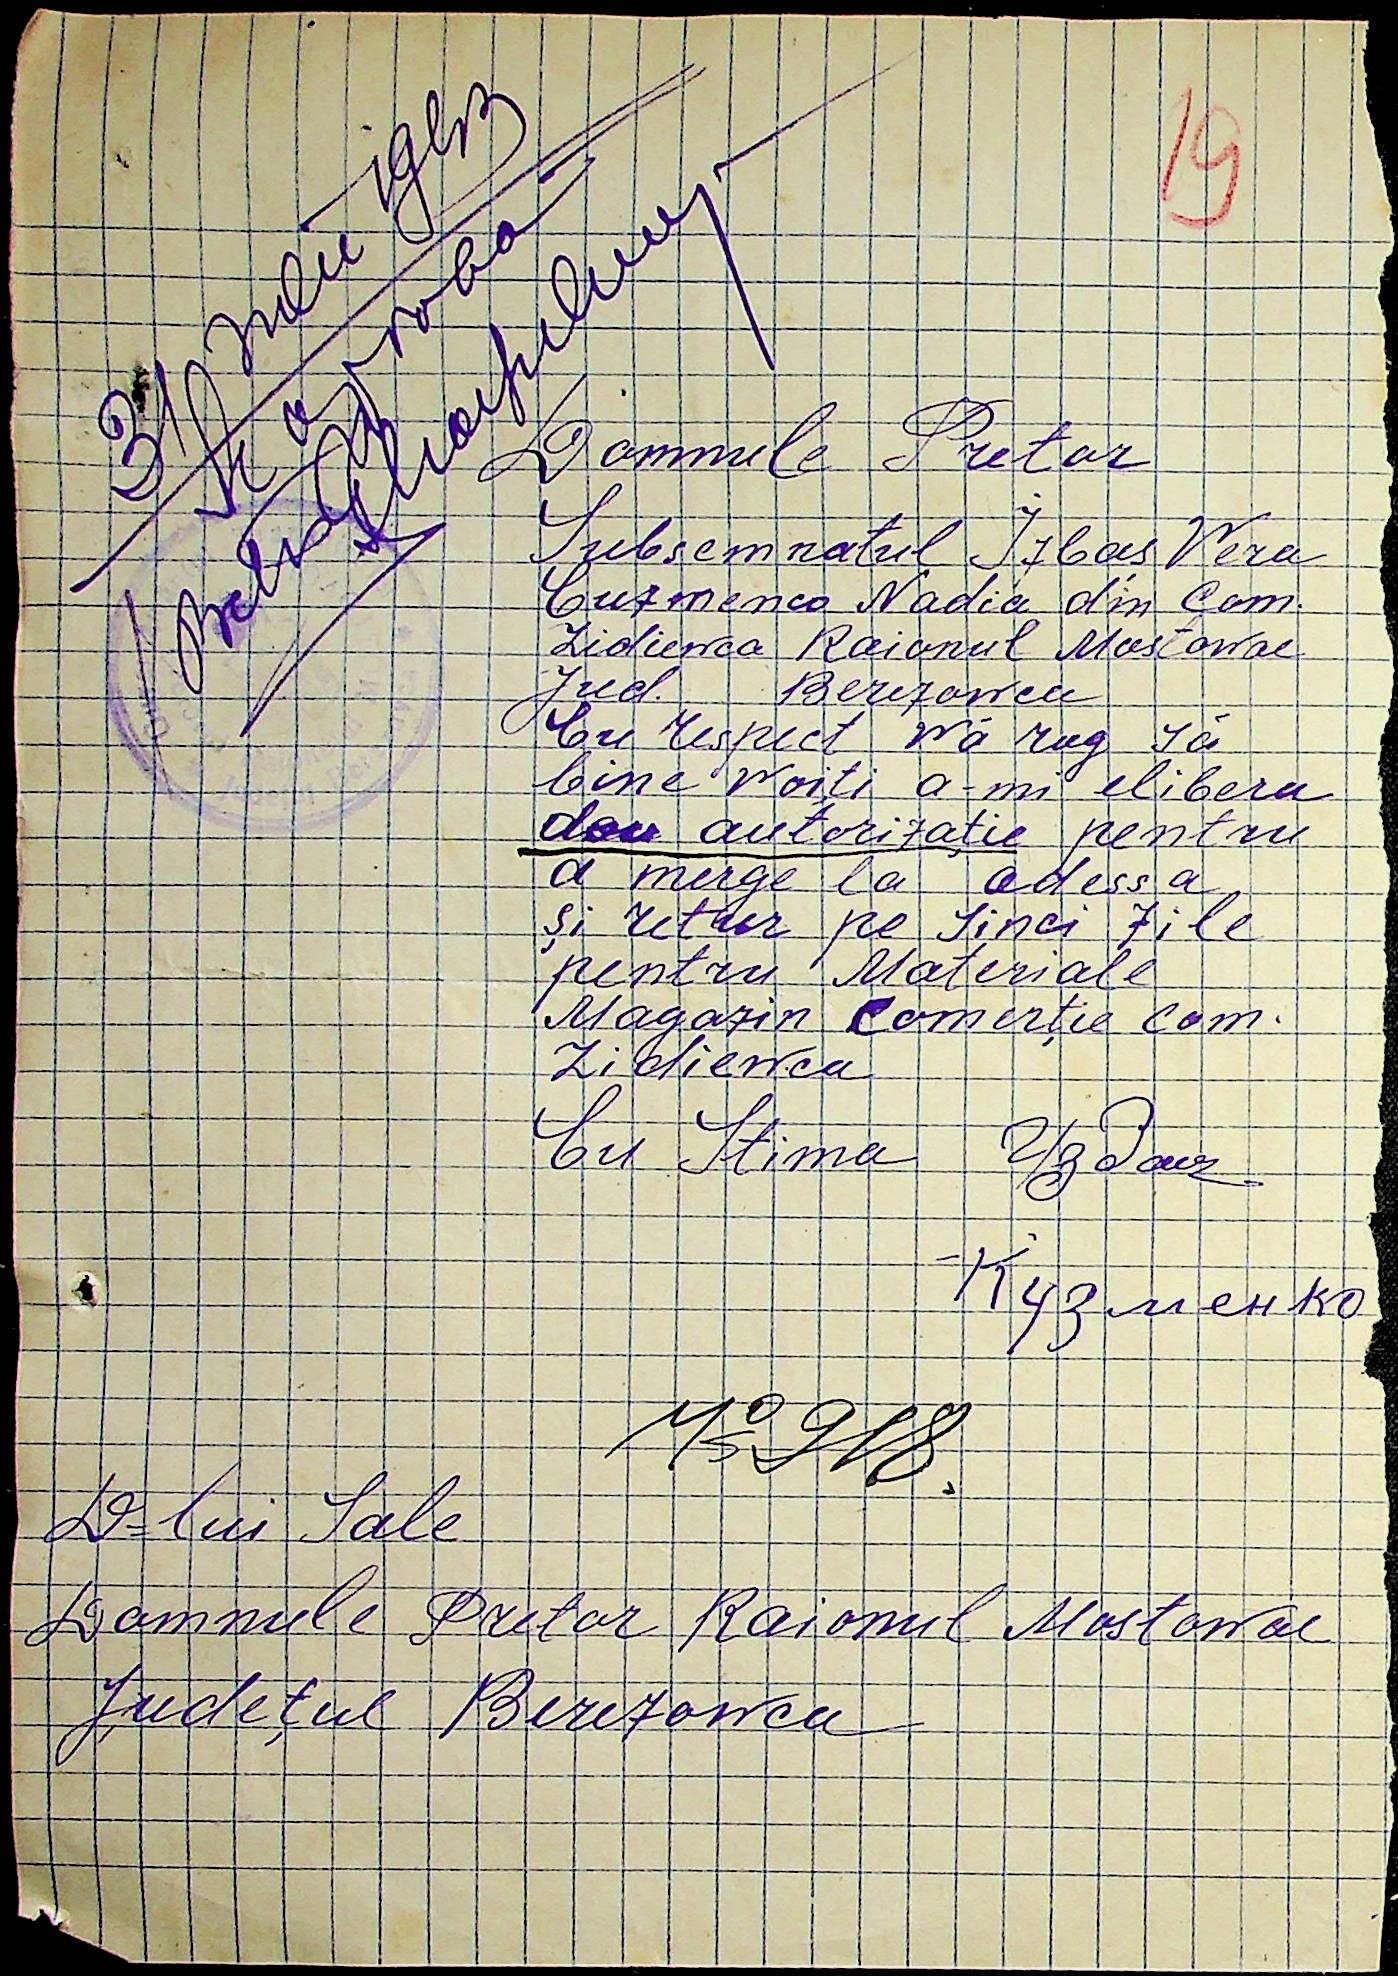 19
31 Mai 1943
Se aprobă
Domnule Pretor
Subsemnatul Izbas Wera
Cuzmenco Nadia din Com.
Zidiewca Raionul Mostowae
Jud. Berezowca
Cu respect Wă rog să
bine Woiți a-mi elibera
dou autorizație pentru
a merge la Odessa
și retur pe sinci zile
pentru Materiale
Magazin Comerție com.
Zidiewca
Cu Stima
Кузменко
No 918.
D=lui Sale
Domnule Pretor Raionul Mostowae
Județul Berezowca